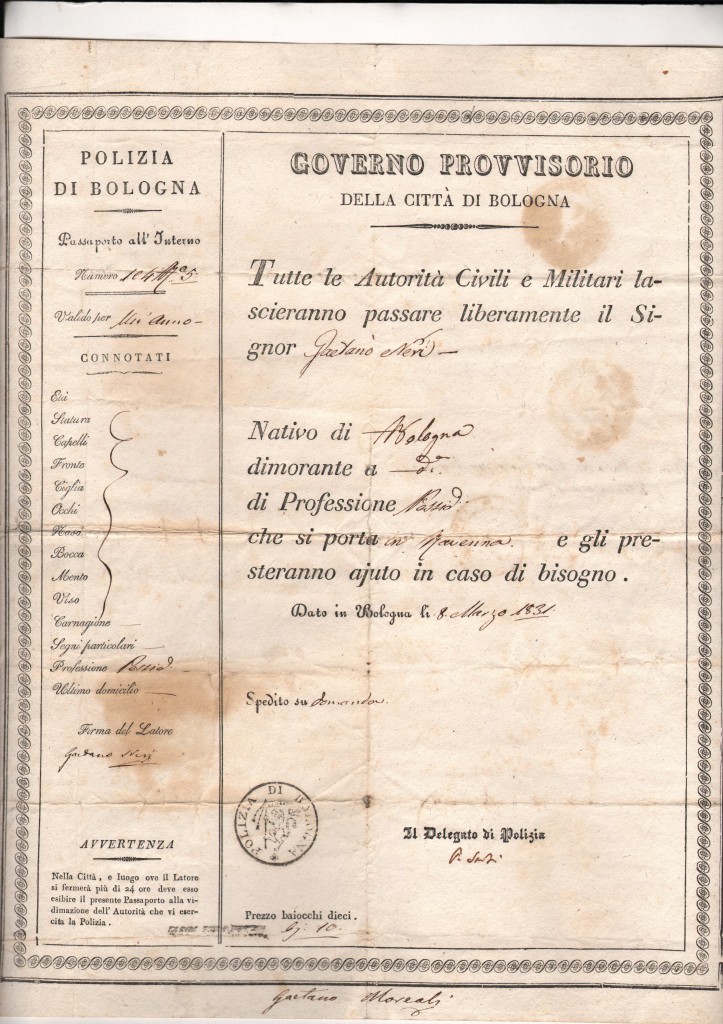 POLIZIA
DI BOLOGNA
Passaporto all' Interno
Numero
Valido per Un' Anno
CONNOTATI
Età
Statura
Capelli
Fronte
Ciglia
Occhi
Naso
Bocca
Mento
Viso
Carnagione
Segni particolari
Professione Possid.
Ultimo domicilio
Firma del Latore
Gaetano Neri
AVVERTENZA
Nella Città, e luogo ove il Latore
si fermerà più di 24 ore deve esso
esibire il presente Passaporto alla vi-
dimazione dell' Autorità che vi eser-
cita la Polizia.
GOVERNO PROVVISORIO
DELLA CITTÀ DI BOLOGNA
Tutte le Autorità Civili e Militari la-
scieranno passare liberamente il Si-
gnor Gaetano Neri
Nativo di Bologna
dimorante a d.
di Professione Possid.
che si porta in Ravenna. e gli pre-
steranno ajuto in caso di bisogno.
Dato in Bologna li 8 Marzo 1831
Spedito su domanda.
POLIZIA DI BOLOGNA
Il Delegato di Polizia
Prezzo baiocchi dieci.
bj. 10.
Gaetano Moreali